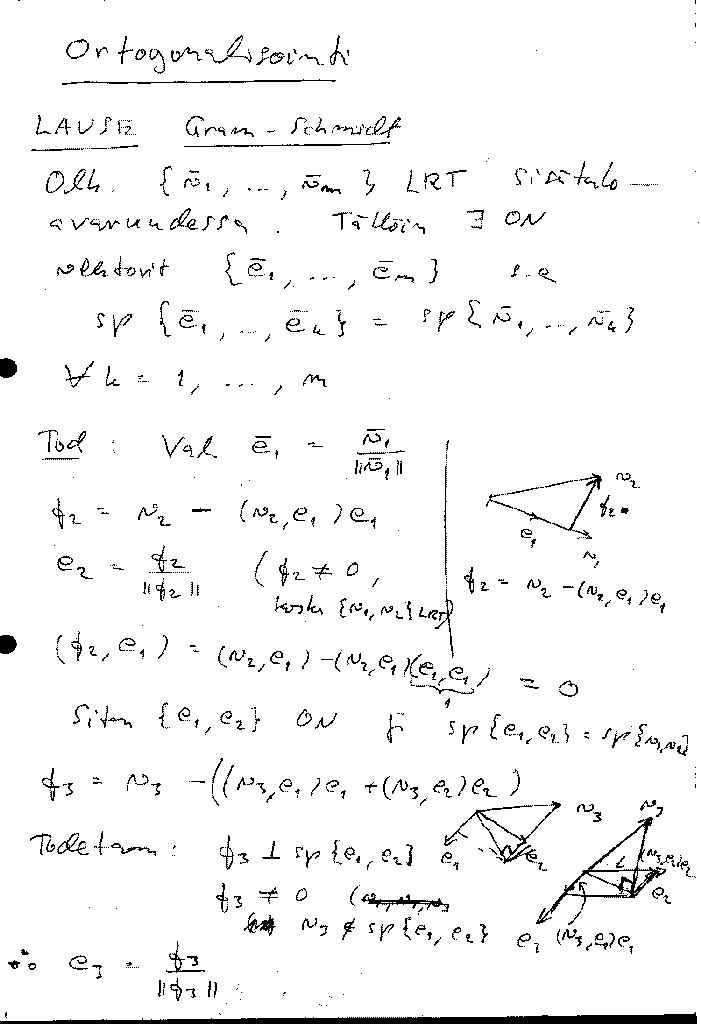 Ortogonalisointi
LAUSE Gram-Schmidt
Olk. {v̄₁, ..., v̄ₘ} LRT sisätulo-
avaruudessa. Tällöin ∃ ON
vektorit {ē₁, ..., ēₘ} s.e
sp {ē₁, ..., ēₖ} = sp {v̄₁, ..., v̄ₖ}
∀ k = 1, ..., m
Tod: Val ē₁ = v̄₁ / ||v̄₁||
f₂ = v₂ - (v₂, e₁)e₁
e₂ = f₂ / ||f₂|| (f₂ ≠ 0,
koska {v₁, v₂} LRT)
v₂
f₂
e₁
v₁
f₂ = v₂ - (v₂, e₁)e₁
(f₂, e₁) = (v₂, e₁) - (v₂, e₁)(e₁, e₁) = 0
1
Siten {e₁, e₂} ON ja sp {e₁, e₂} = sp {v₁, v₂}
f₃ = v₃ - ((v₃, e₁)e₁ + (v₃, e₂)e₂)
Todetaan: f₃ ⊥ sp {e₁, e₂}
f₃ ≠ 0 (
v₃ ∉ sp {e₁, e₂}
v₃
e₁
e₂
v₃
(v₃, e₂)e₂
e₂
e₁
(v₃, e₁)e₁
∴ e₃ = f₃ / ||f₃||